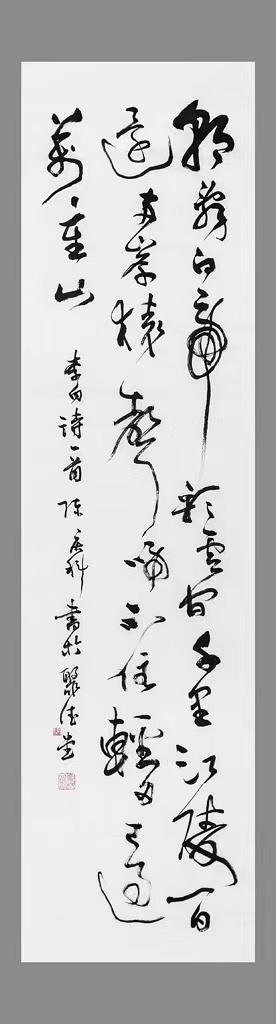 朝辭白帝彩雲間千里江陵一日
還兩岸猿聲啼不住輕舟已過
萬重山 李白詩一首 陳科書於聚德堂